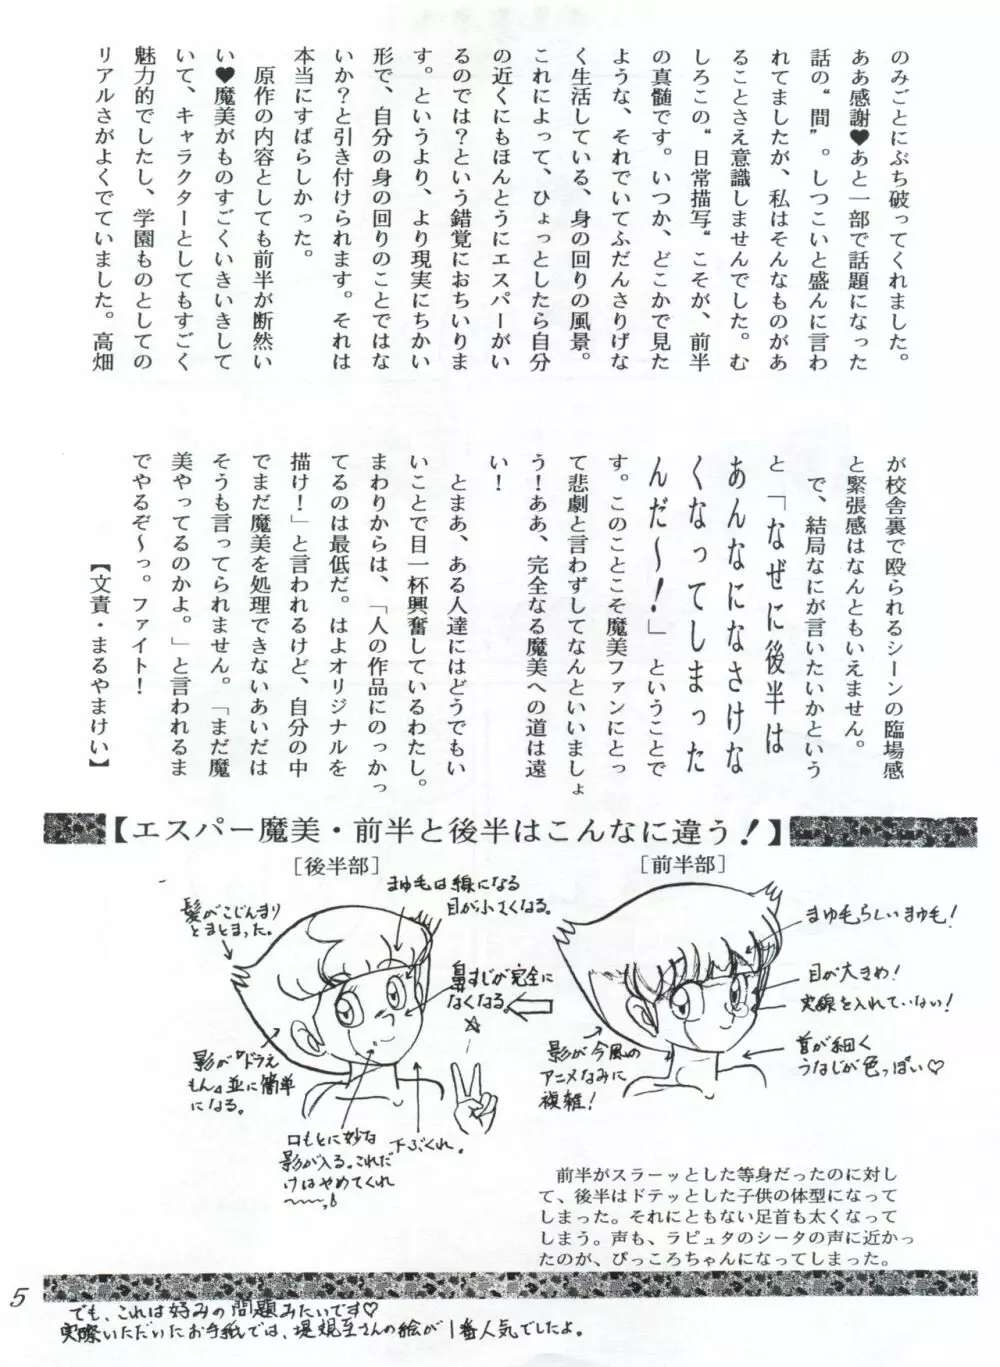 のみごとにぶち破ってくれました。
ああ感謝♥あと一部で話題になった
話の“間”。しつこいと盛んに言わ
れてましたが、私はそんなものがあ
ることさえ意識しませんでした。む
しろこの“日常描写“こそが、前半
の真髄です。いつか、どこかで見た
ような、それでいてふだんさりげな
く生活している、身の回りの風景。
これによって、ひょっとしたら自分
の近くにもほんとうにエスパーがい
るのでは？という錯覚におちいりま
す。というより、より現実にちかい
形で、自分の身の回りのことではな
いか？と引き付けられます。それは
本当にすばらしかった。
　原作の内容としても前半が断然い
い♥魔美がものすごくいきいきして
いて、キャラクターとしてもすごく
魅力的でしたし、学園ものとしての
リアルさがよくでていました。高畑
が校舎裏で殴られるシーンの臨場感
と緊張感はなんともいえません。
　で、結局なにが言いたいかという
と「なぜに後半は
あんなになさけな
くなってしまった
んだ～！」ということで
す。このことこそ魔美ファンにとっ
て悲劇と言わずしてなんといいましょ
う！ああ、完全なる魔美への道は遠
い！
　とまあ、ある人達にはどうでもい
いことで目一杯興奮しているわたし。
まわりからは、「人の作品にのっかっ
てるのは最低だ。はよオリジナルを
描け！」と言われるけど、自分の中
でまだ魔美を処理できないあいだは
そうも言ってられません。「まだ魔
美やってるのかよ。」と言われるま
でやるぞ～っ。ファイト！
【文責・まるやまけい】
【エスパー魔美・前半と後半はこんなに違う！】
［前半部］
まゆ毛らしいまゆ毛！
目が大きめ！
実線を入れていない！
首が細く
うなじが色っぽい♡
影が今風の
アニメなみに
複雑！
［後半部］
まゆ毛は線になる
目が小さくなる。
髪がこじんまり
とまとまった。
鼻すじが完全に
なくなる。
☆
影が『ドラえ
もん』並に簡単
になる。
口もとに妙な
影が入る。これだ
けはやめてくれ
～～～っ
下ぶくれ。
　前半がスラーッとした等身だったのに対し
て、後半はドテッとした子供の体型になって
しまった。それにともない足首も太くなって
しまう。声も、ラピュタのシータの声に近かっ
たのが、ぴっころちゃんになってしまった。
5
でも、これは好みの問題みたいです♡
実際いただいたお手紙では、堤規至さんの絵が1番人気でしたよ。